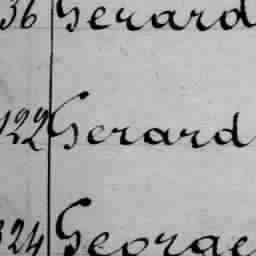 36 Gerard
122 Gerard
324 George